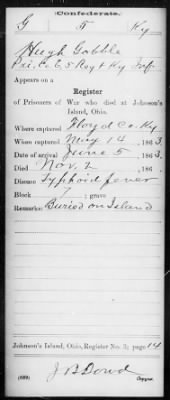 Confederate.
G 5 Ky
Hugh Gabble
Pri. Co. E, 5 Regt Ky Inf.
Appears on a
Register
of Prisoners of War who died at Johnson's
Island, Ohio.
Where captured Floyd Co. Ky
When captured May 14, 1863.
Date of arrival June 5, 1863.
Died Nov. 2, 186
Disease Typhoid fever
Block 7; grave
Remarks: Buried on Island
Johnson's Island, Ohio, Register No. 3; page 14
J B Dowd
(689) Copyist.